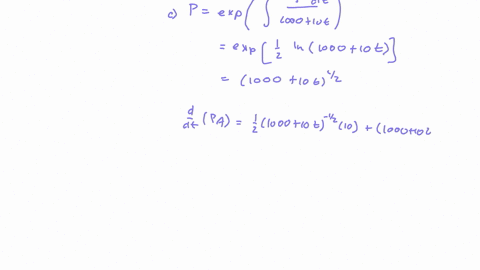 c) P = exp( ∫ dt / 1000+10t )
= exp[ 1/2 ln (1000+10t) ]
= (1000 +10t)^1/2
d/dt (PA) = 1/2 (1000+10t)^-1/2 (10) + (1000+10t